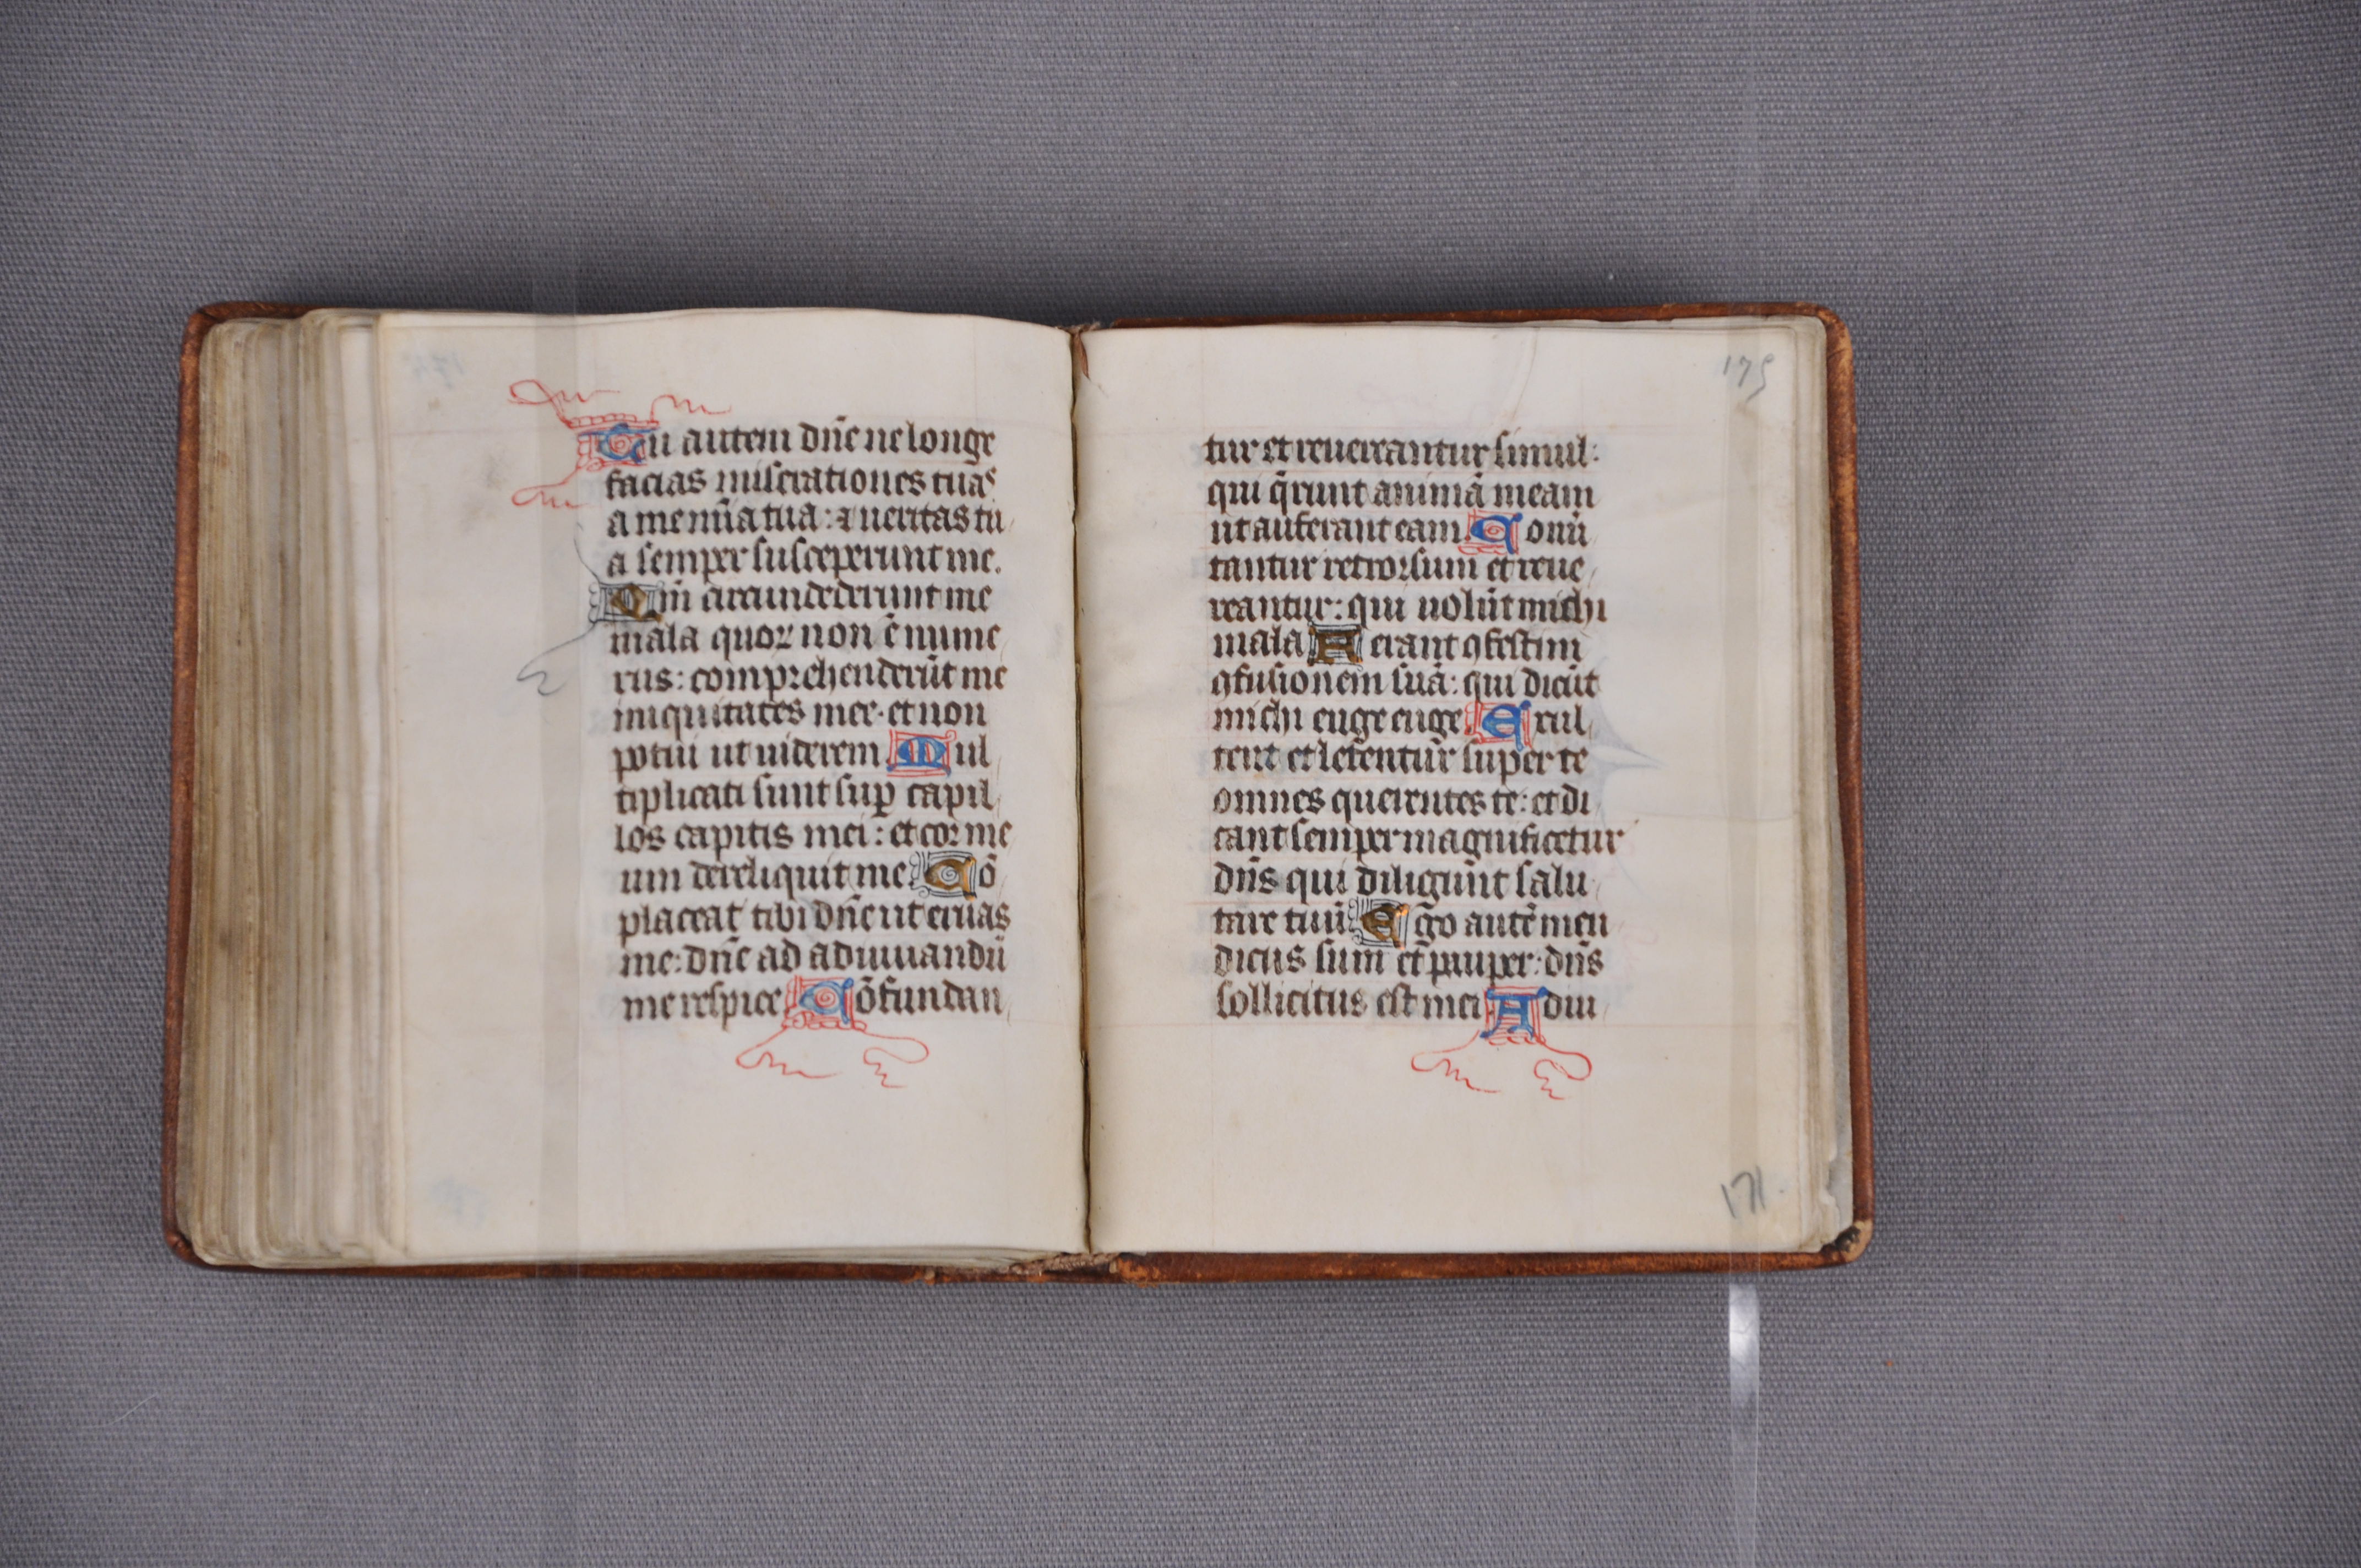 Tu autem dñe ne longe
facias miserationes tuas
a me mĩa tua: ⁊ ueritas tu
a semper susceperunt me.
Qm̃ circumdederunt me
mala quoꝝ non ẽ nume
rus: comprehenderũt me
iniquitates mee. et non
potui ut uiderem Mul
tiplicati sunt suꝑ capil
los capitis mei: et cor me
um dereliquit me. Cõ
placeat tibi dñe ut eruas
me: dñe ad adiuuandũ
me respice Cõfundan
175
tur et reuereantur simul:
qui q̃runt animã meam
ut auferant eam Conũ
tantur retrorsum et reue
reantur: qui uolũt michi
mala Ferant ꝯfestim
ꝯfusionem suã: qui dicũt
michi euge euge Exul
tent et letentur super te
omnes querentes te: et di
cant semper magnificetur
dñs qui diligunt salu
tare tuũ Ego autẽ men
dicus sum et pauper: dñs
sollicitus est mei Adiu
171